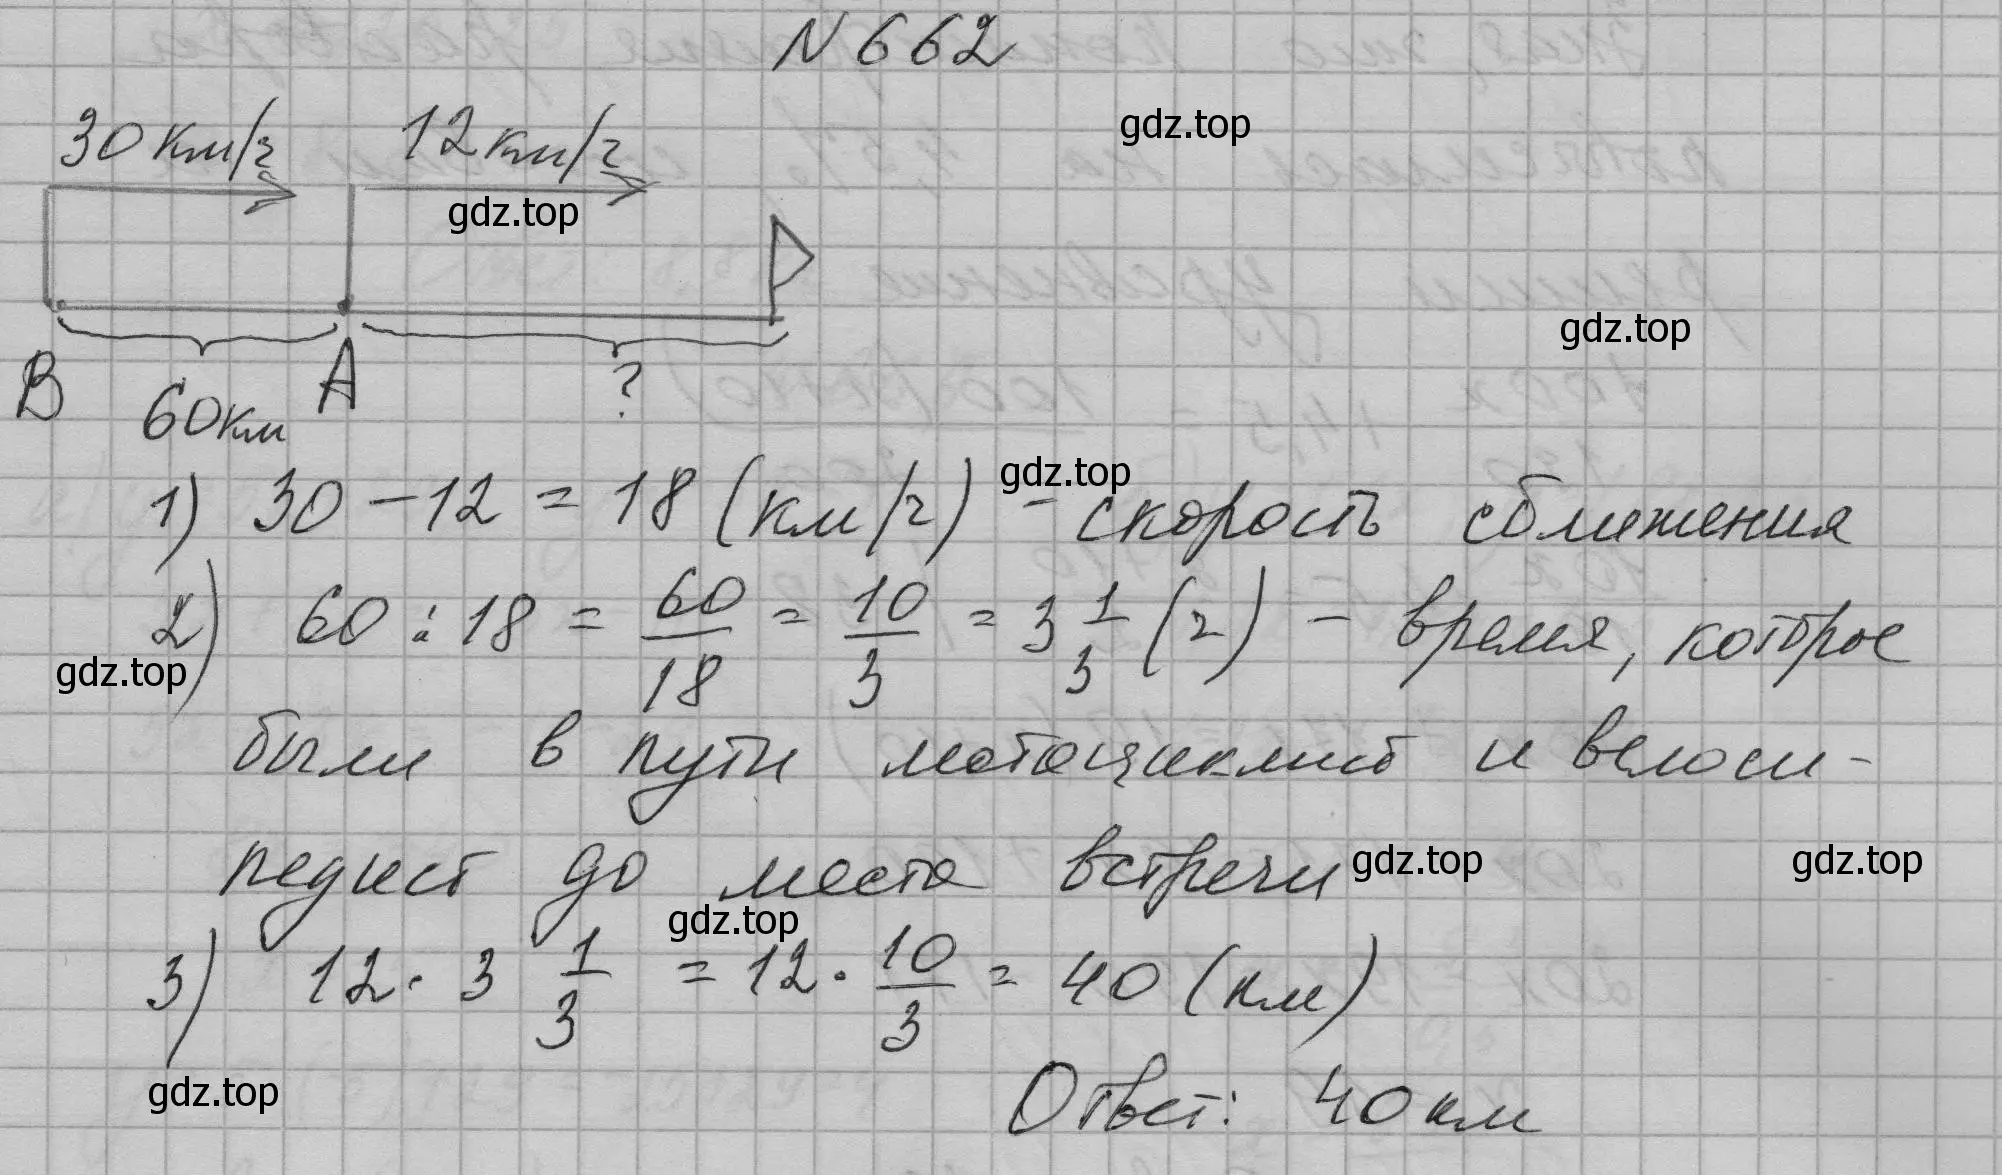 N 662
gdz.top
30 км/ч 12 км/ч
gdz.top
gdz.top
B 60 км A ?
gdz.top
1) 30 – 12 = 18 (км/ч) – скорость сближения
2) 60 : 18 = 60/18 = 10/3 = 3 1/3 (ч) – время, которое
gdz.top
были в пути мотоциклист и велоси-
педист до места встречи
gdz.top gdz.top
gdz.top
3) 12 · 3 1/3 = 12 · 10/3 = 40 (км)
gdz.top
Ответ: 40 км